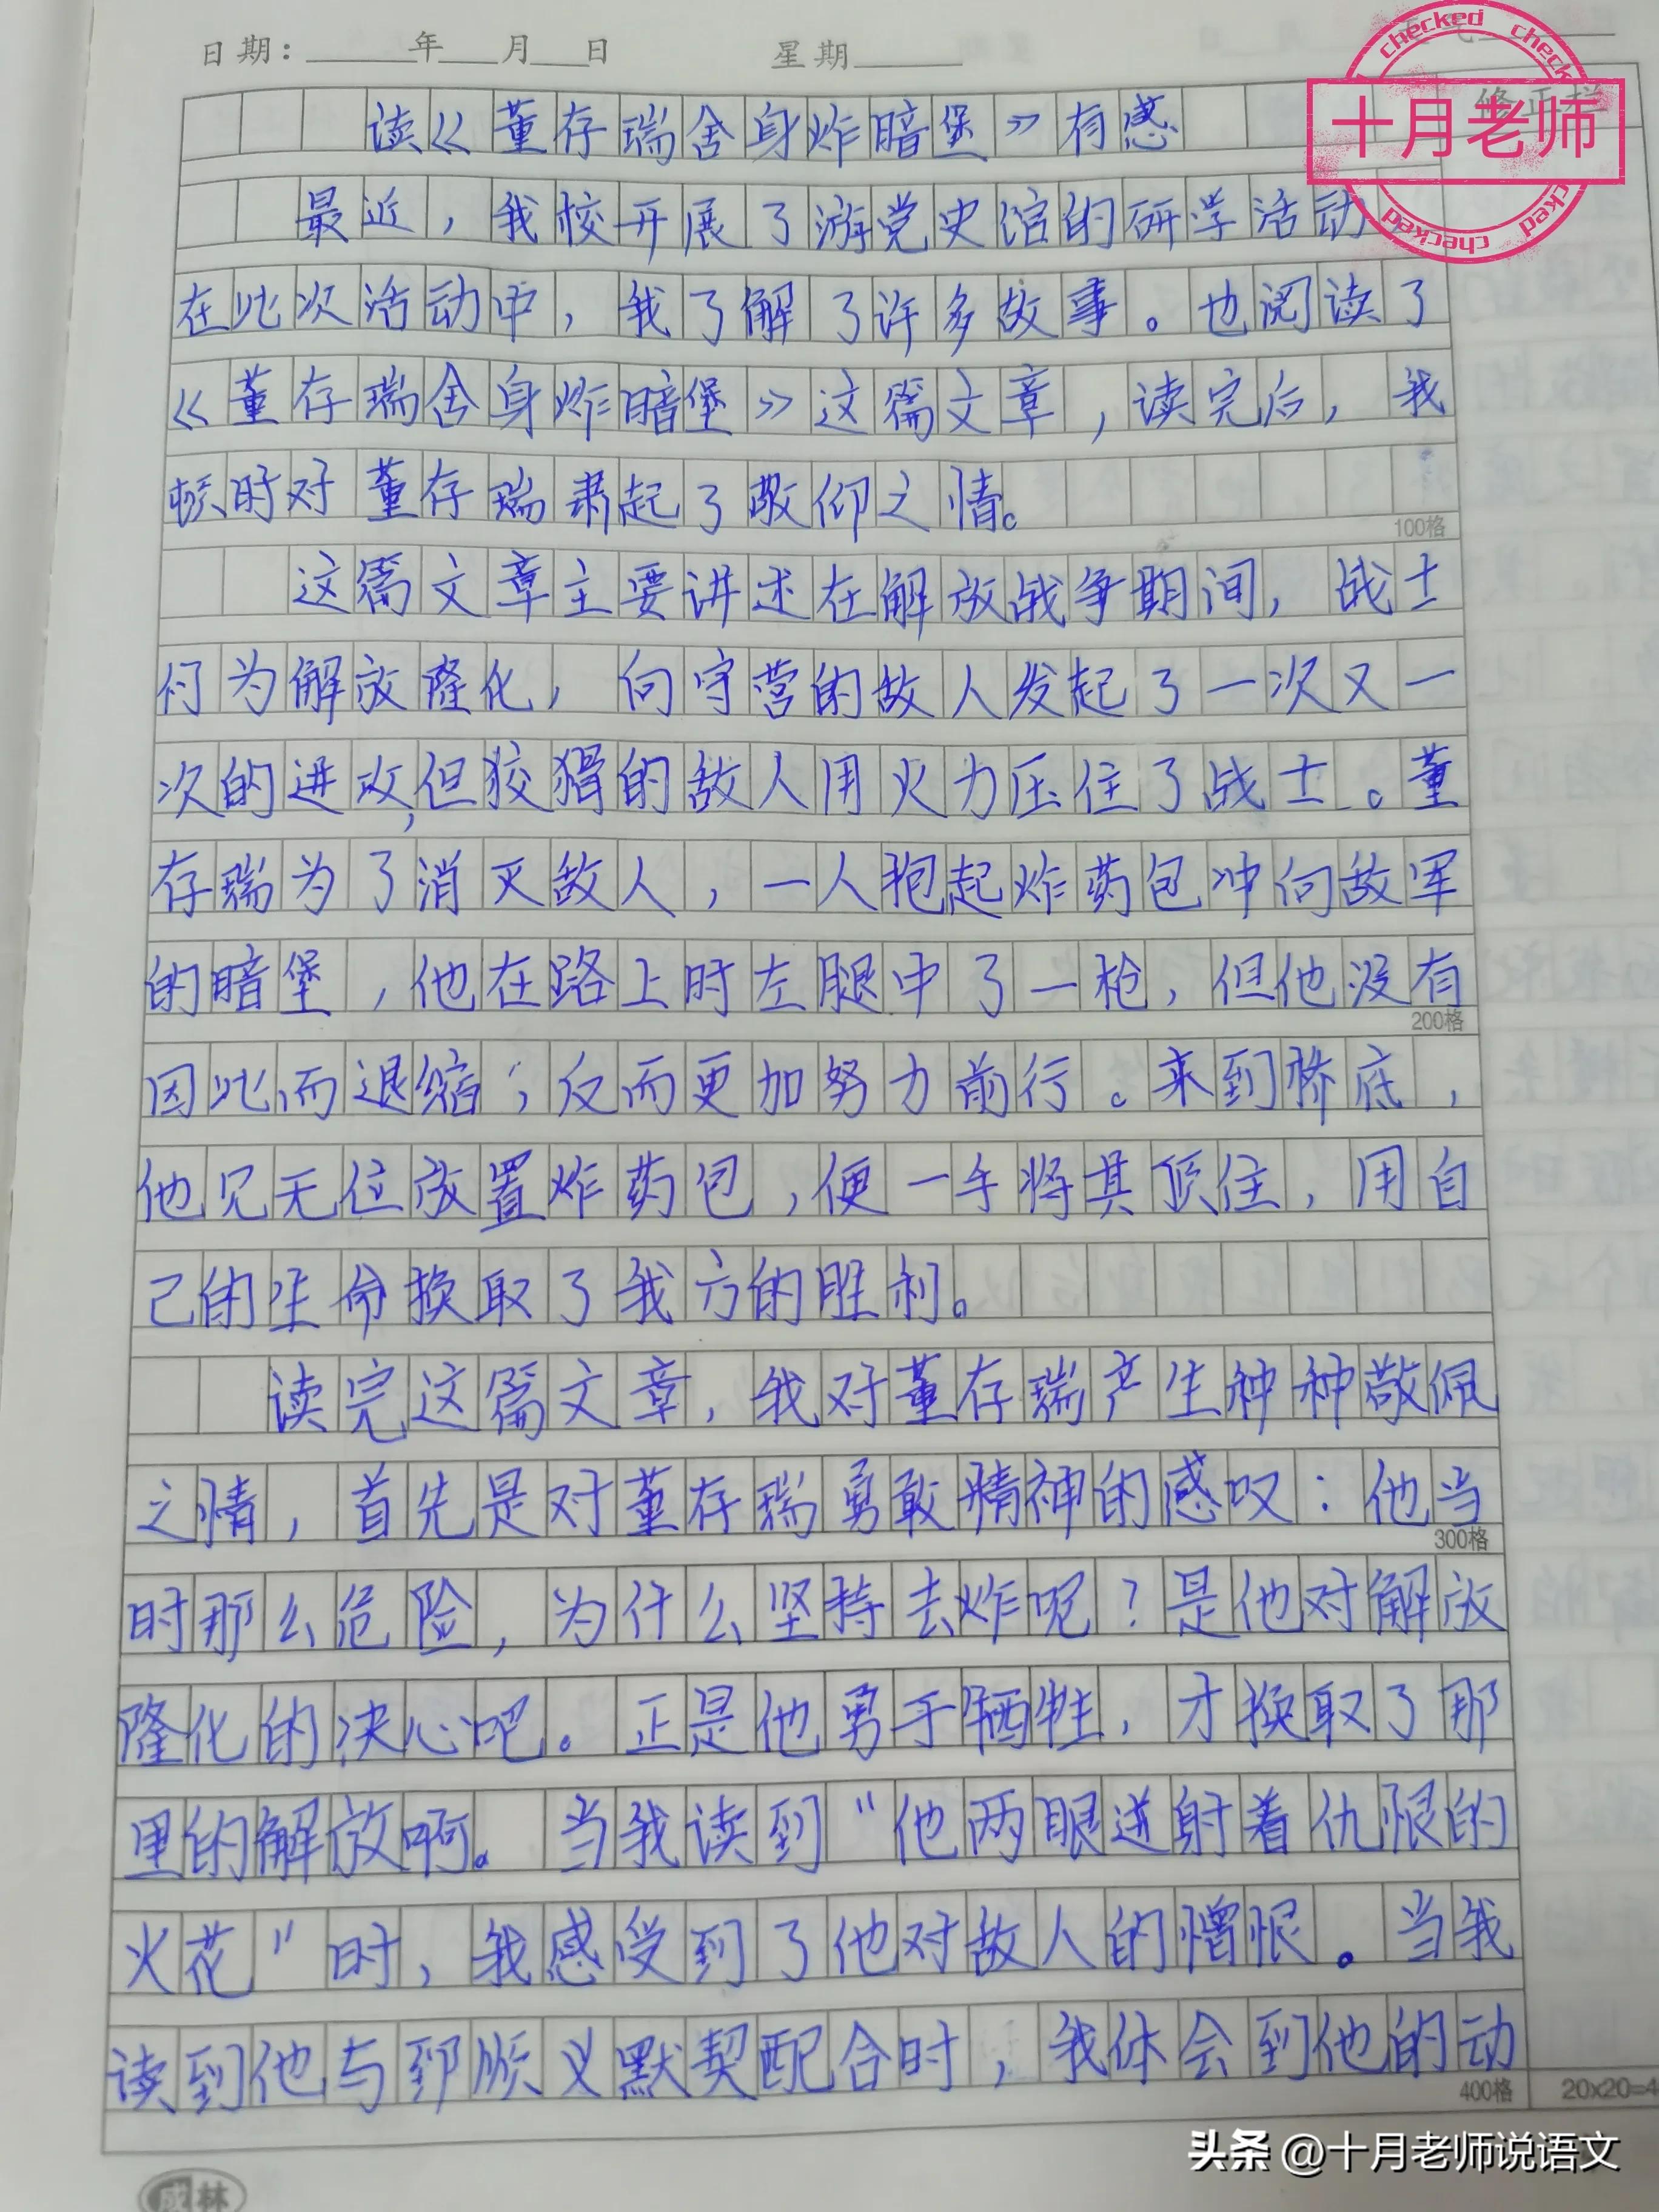 日期：年月日 星期
修正栏
checked checked
十月老师
checked checked
读《董存瑞舍身炸暗堡》有感
最近，我校开展了游党史馆的研学活动，
在此次活动中，我了解了许多故事。也阅读了
《董存瑞舍身炸暗堡》这篇文章，读完后，我
顿时对董存瑞肃起了敬仰之情。
100格
这篇文章主要讲述在解放战争期间，战士
们为解放隆化，向守营的敌人发起了一次又一
次的进攻，但狡猾的敌人用火力压住了战士。董
存瑞为了消灭敌人，一人抱起炸药包冲向敌军
的暗堡，他在路上时左腿中了一枪，但他没有
200格
因此而退缩；反而更加努力前行。来到桥底，
他见无位放置炸药包，便一手将其顶住，用自
己的生命换取了我方的胜利。
读完这篇文章，我对董存瑞产生种种敬佩
之情，首先是对董存瑞勇敢精神的感叹：他当
300格
时那么危险，为什么坚持去炸呢？是他对解放
隆化的决心吧。正是他勇于牺牲，才换取了那
里的解放啊。当我读到“他两眼迸射着仇恨的
火花”时，我感受到了他对敌人的憎恨。当我
读到他与郅顺义默契配合时，我体会到他的动
400格 20x20=4
头条 @十月老师说语文
林